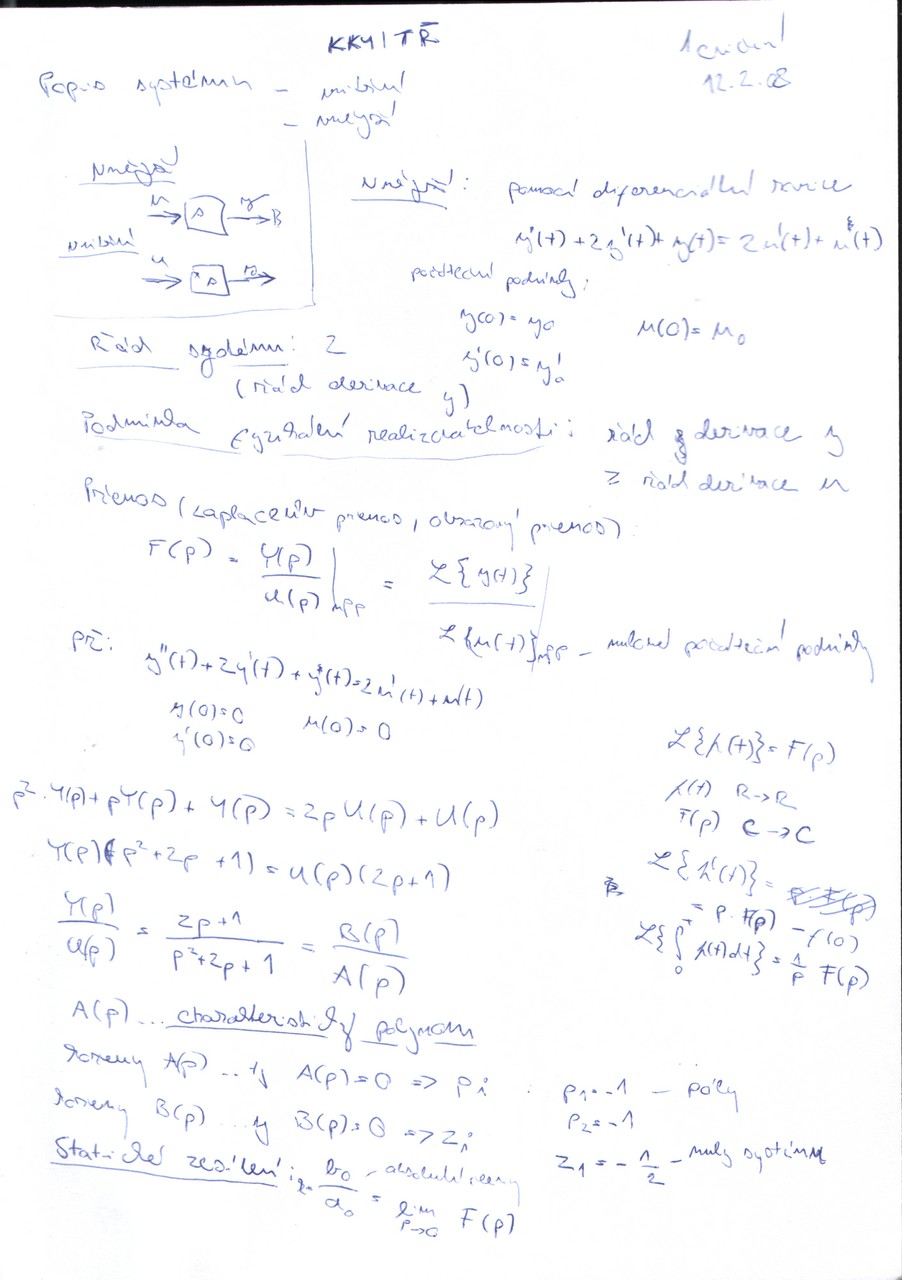 KKY/TŘ
1 cvičení
12.2.08
Popis systému – vnitřní
– vnější
Vnější
u s y
vnitřní
u s y
Vnější: pomocí diferenciální rovnice
y''(t) + 2y'(t) + y(t) = 2u'(t) + u(t)
počáteční podmínky:
y(0) = y₀ u(0) = u₀
y'(0) = y'₀
Řád systému: 2
(řád derivace y)
Podmínka fyzikální realizovatelnosti: řád derivace y
≥ řád derivace u
Přenos (Laplaceův přenos, obrazový přenos):
F(p) = Y(p)/U(p) |npp = L{y(t)}/L{u(t)} |npp – nulové počáteční podmínky
př:
y''(t) + 2y'(t) + y(t) = 2u'(t) + u(t)
y(0) = 0 u(0) = 0
y'(0) = 0
p²·Y(p) + pY(p) + Y(p) = 2pU(p) + U(p)
Y(p)(p² + 2p + 1) = U(p)(2p+1)
Y(p)/U(p) = (2p+1)/(p²+2p+1) = B(p)/A(p)
L{f(t)} = F(p)
f(t) R→R
F(p) C→C
L{f'(t)} =
= p·F(p) – f(0)
L{∫₀ᵀ f(t)dt} = 1/p F(p)
A(p) ... charakteristický polynom
kořeny A(p) ... tj A(p) = 0 => pᵢ : p₁ = -1 – póly
p₂ = -1
kořeny B(p) ... tj B(p) = 0 => zᵢ
z₁ = -1/2 – nuly systému
Statické zesílení: b₀/a₀ – absolutní členy = lim p→0 F(p)